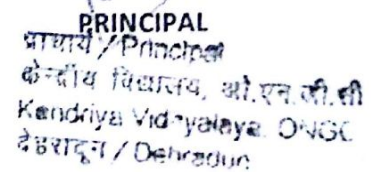 PRINCIPAL
प्राचार्य / Principal
केन्द्रीय विद्यालय, ओ.एन.जी.सी
Kendriya Vidyalaya, ONGC
देहरादून / Dehradun